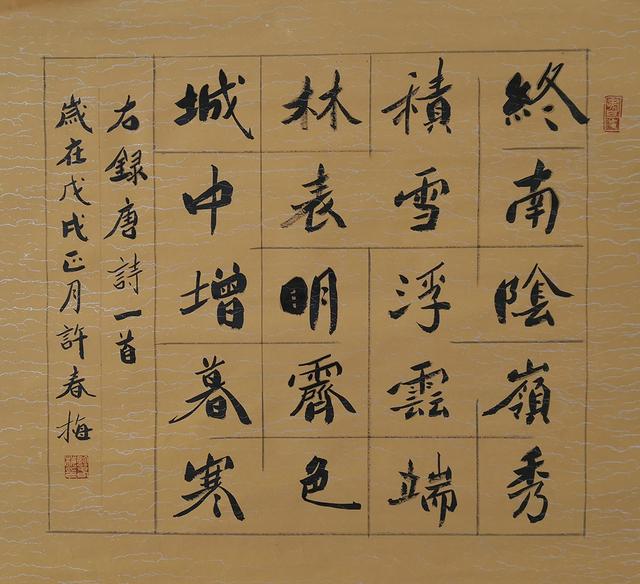 終南陰嶺秀
積雪浮雲端
林表明霽色
城中增暮寒
右録唐詩一首
歲在戊戌正月許春梅